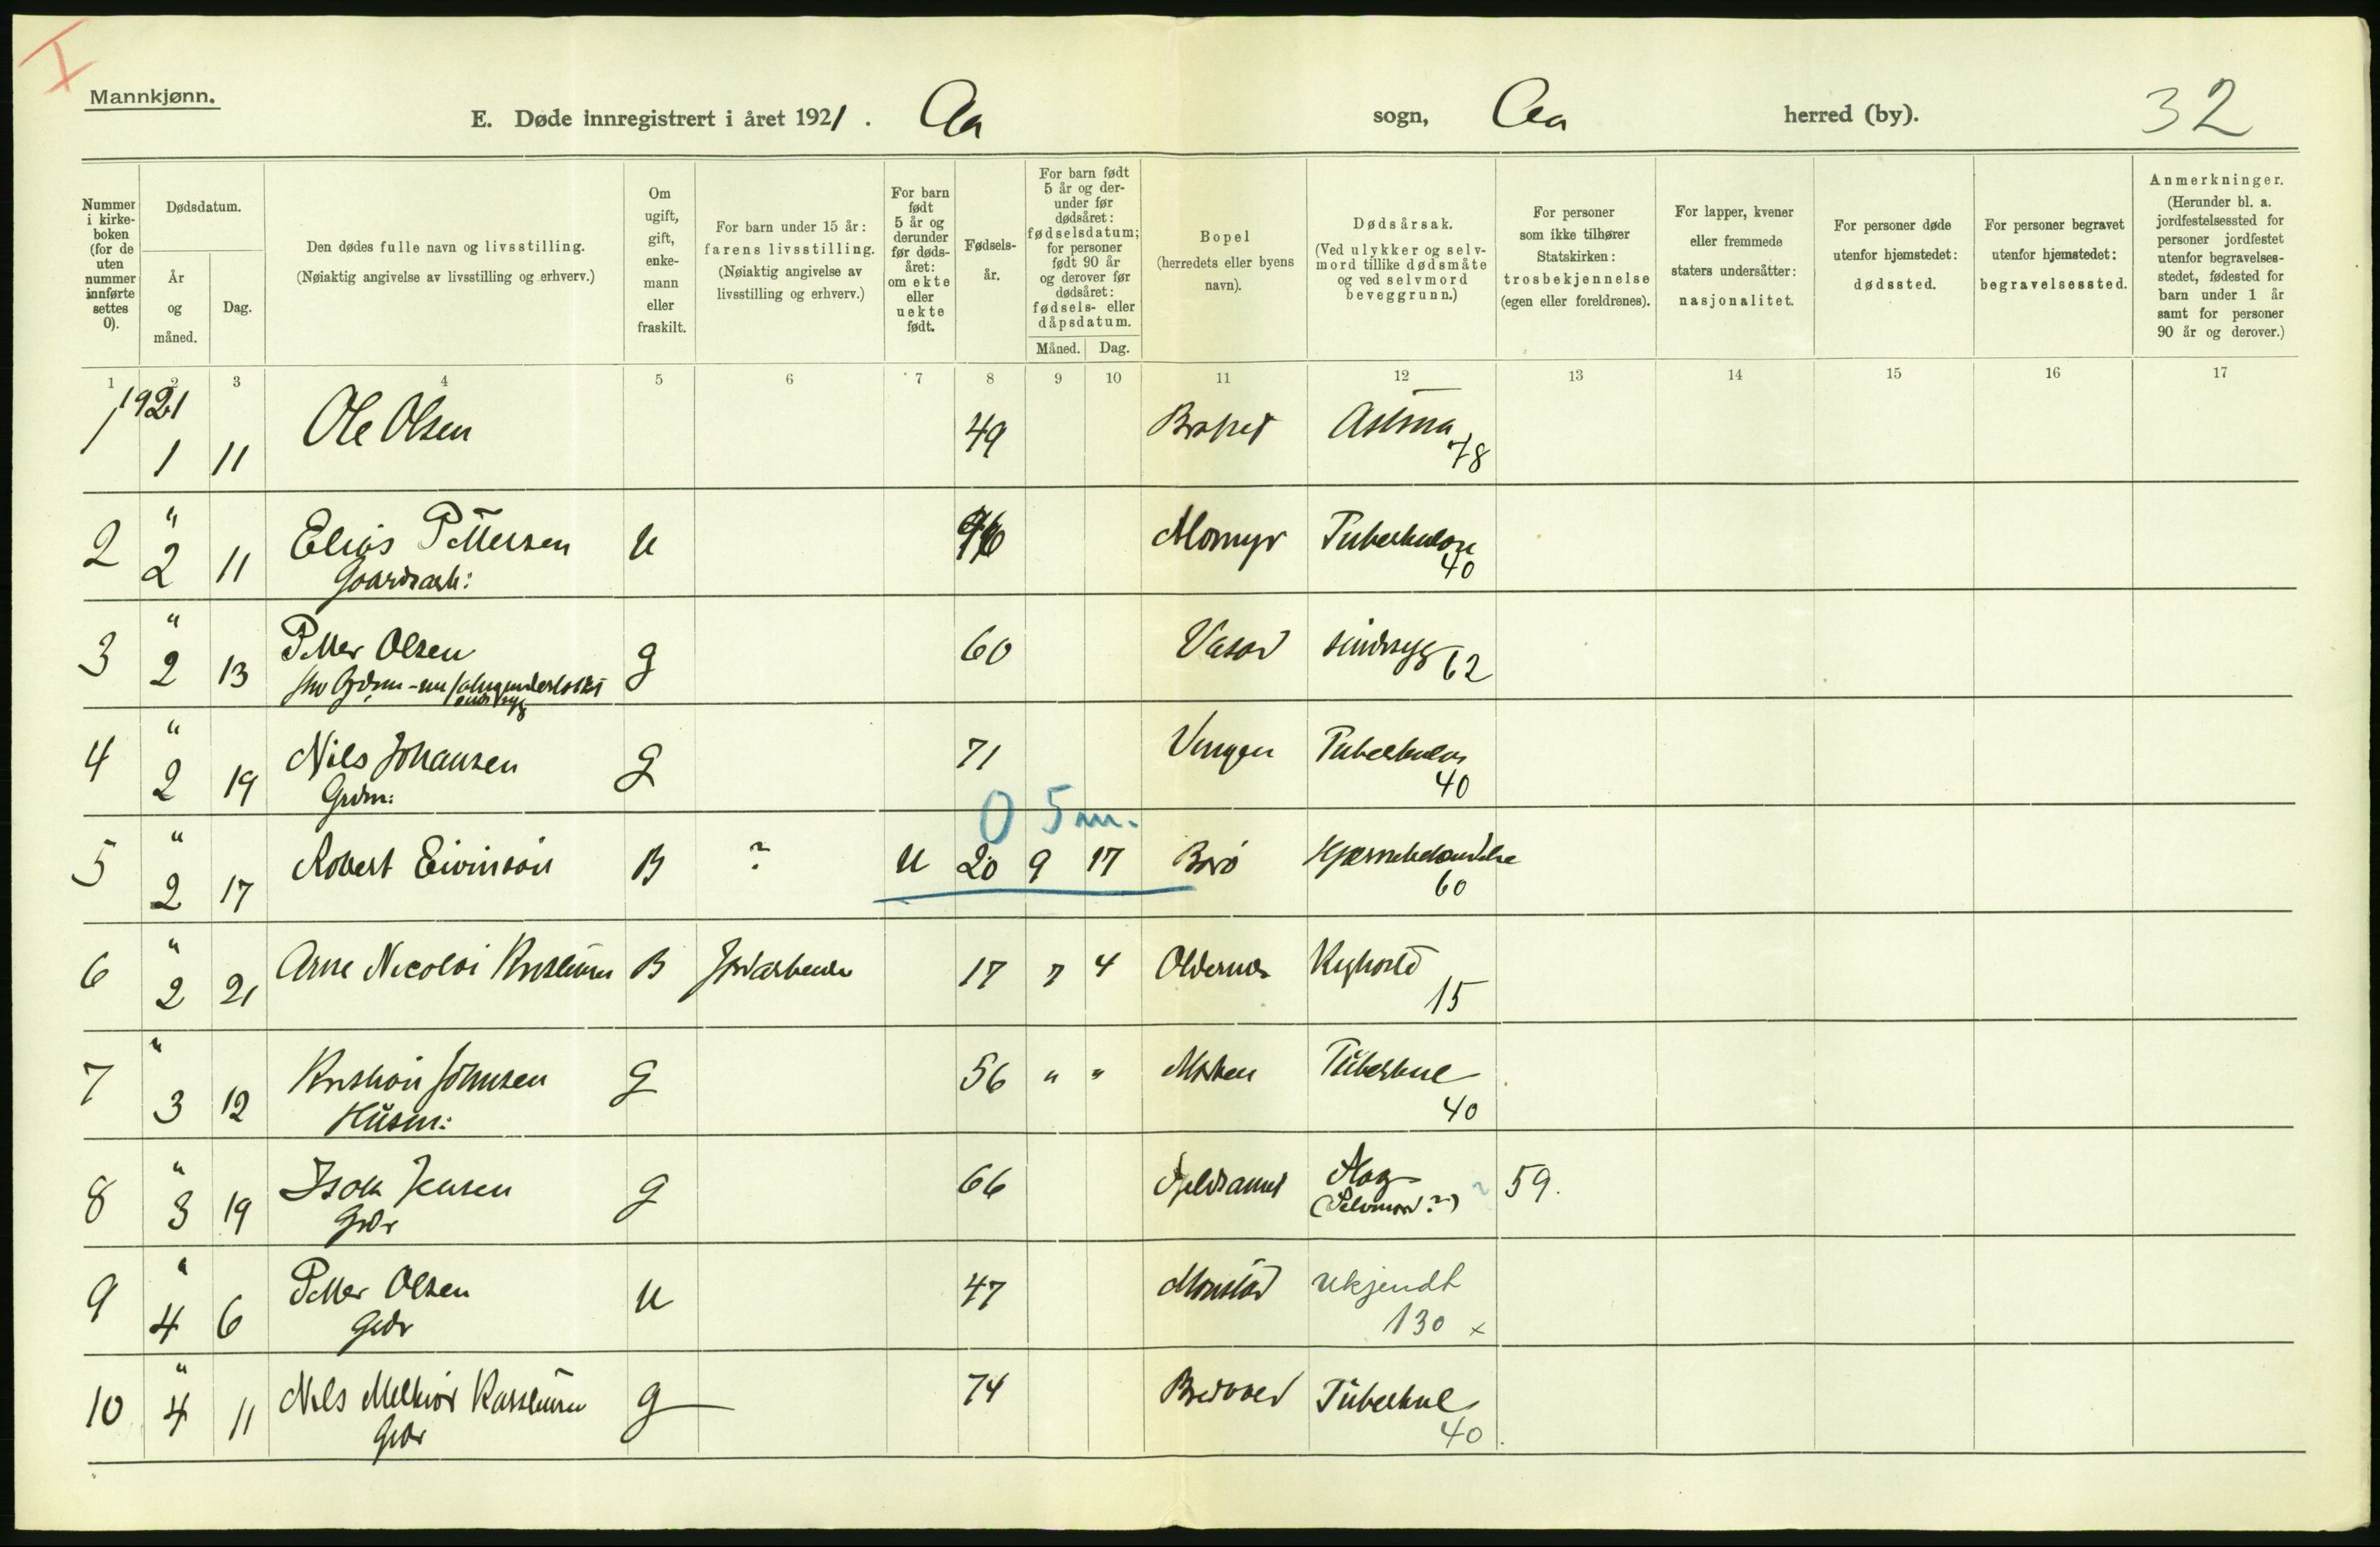 I
Mannkjønn.
E. Døde innregistrert i året 1921. Aa sogn, Aa herred (by).
32
Nummer i kirkeboken (for de uten nummer innførte settes 0).
Dødsdatum.
År og måned.
Dag.
Den dødes fulle navn og livsstilling.
(Nøiaktig angivelse av livsstilling og erhverv.)
Om ugift, gift, enkemann eller fraskilt.
For barn under 15 år: farens livsstilling.
(Nøiaktig angivelse av livsstilling og erhverv.)
For barn født 5 år og derunder før dødsåret: om ekte eller uekte født.
Fødselsår.
For barn født 5 år og derunder før dødsåret: fødselsdatum; for personer født 90 år og derover før dødsåret: fødsels- eller dåpsdatum.
Måned. Dag.
Bopel
(herredets eller byens navn).
Dødsårsak.
(Ved ulykker og selvmord tillike dødsmåte og ved selvmord beveggrunn.)
For personer som ikke tilhører Statskirken: trosbekjennelse (egen eller foreldrenes).
For lapper, kvener eller fremmede staters undersåtter: nasjonalitet.
For personer døde utenfor hjemstedet: dødssted.
For personer begravet utenfor hjemstedet: begravelsessted.
Anmerkninger.
(Herunder bl. a. jordfestelsessted for personer jordfestet utenfor begravelsesstedet, fødested for barn under 1 år samt for personer 90 år og derover.)
1 2 3 4 5 6 7 8 9 10 11 12 13 14 15 16 17
1 1921 1 11 Ole Olsen 49 Astma 78
2 " 2 11 Elias Pettersen U Tuberkulose 40
Gaardsarb:
3 " 2 13 Petter Olsen g 60 sindssyg 62
4 " 2 19 Nils Johansen g 71 Tuberkulos 40
Grdm:
0 5 m.
5 " 2 17 Robert Eivinson B ? U 20 9 17 Borö 60
6 " 2 21 Arne Nicolai B Jordarbeider 17 7 4 Oldernes Kighoste 15
7 " 3 12 Kristian Johnsen g 56 " " Tüberkul 40
Hüsm:
8 " 3 19 Isak Jensen g 66 (Selvmord?) 59.
Grdr
9 " 4 6 Petter Olsen U 47 Monstad ukjendt 130 x
Grdr
10 " 4 11 Nils Melkior g 74 Tüberkul 40
Grdr